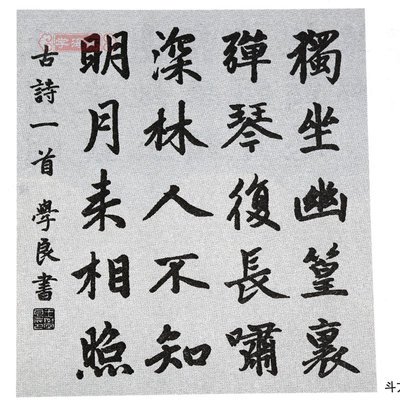 獨坐幽篁裏
彈琴復長嘯
深林人不知
明月来相照
古詩一首 學良書